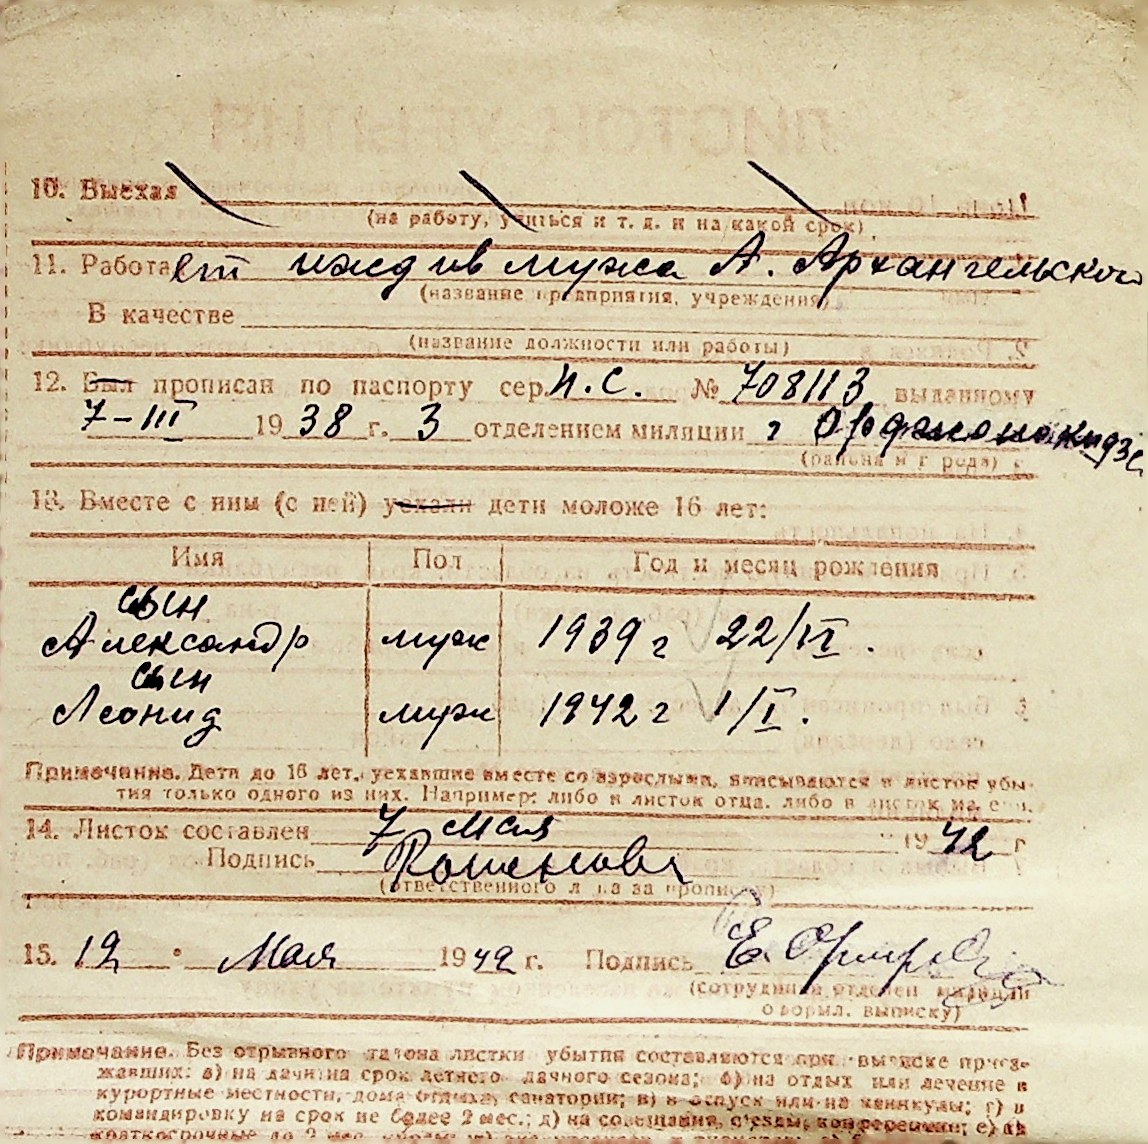 10. Выехал
(на работу, учиться и т. д. и на какой срок)
11. Работает иждив мужа А. Архангельского
(название предприятия, учреждения)
В качестве
(название должности или работы)
12. Был прописан по паспорту сер. И.С. № 708113 выданному
7-III 1938 г. 3 отделением милиции г Орджоникидзе
(района и города)
13. Вместе с ним (с ней) уехали дети моложе 16 лет:
Имя Пол Год и месяц рождения
сын
Александр муж 1939 г 22/VI.
сын
Леонид муж 1942 г 1/I.
Примечание. Дети до 16 лет, уехавшие вместе со взрослыми, вписываются в листок убы-
тия только одного из них. Например: либо в листок отца, либо в листок матери.
14. Листок составлен 7 мая 1942 г
Подпись
(ответственного лица за прописку)
15. 12 " Мая 1942 г. Подпись Е.
(сотрудника отделен милиции
оформл. выписку)
Примечание. Без отрывного талона листки убытия составляются при выписке приез-
жавших: а) на дачи на срок летнего дачного сезона; б) на отдых или лечение в
курортные местности, дома отдыха, санатории; в) в отпуск или на каникулы; г) в
командировку на срок не более 2 мес.; д) на совещания, съезды, конференции; е) на